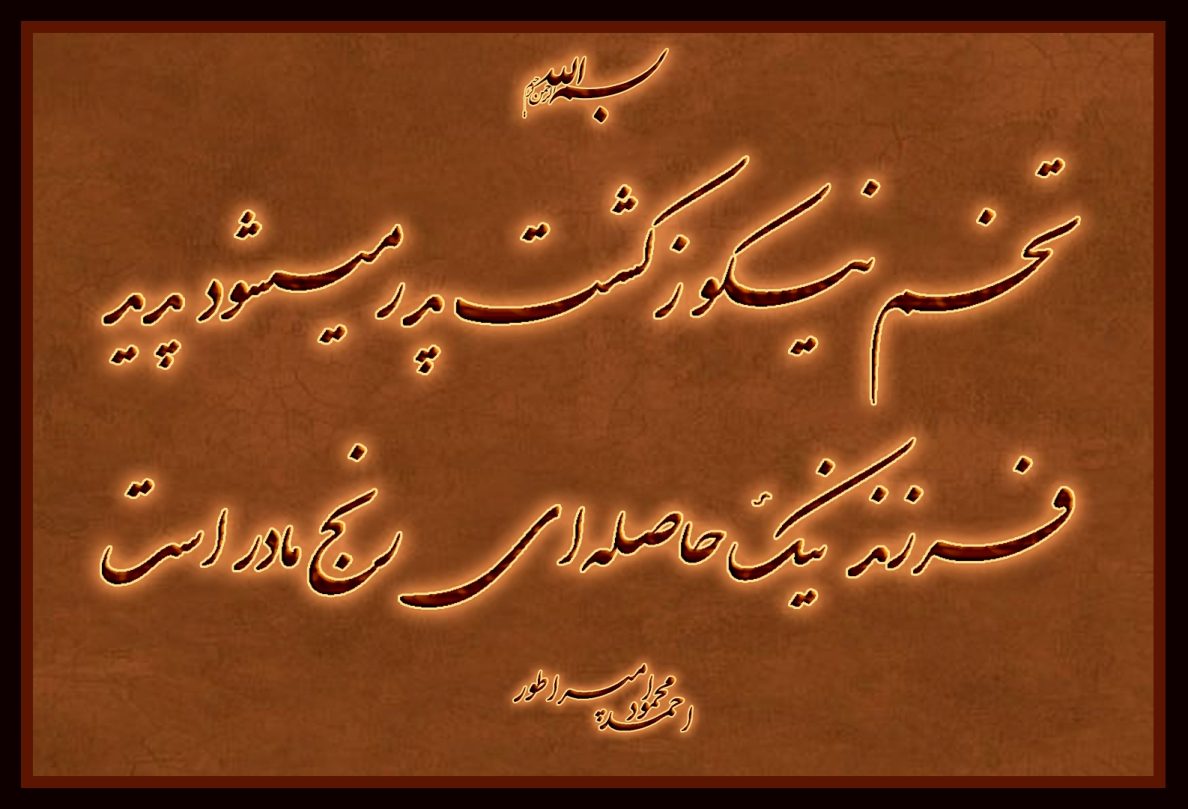 بسم الله الرحمن الرحیم
تخم نیکو ز کشت پدر میشود پدید
فرزند نیک حاصله ای رنج مادر است
احمد محمود امپراطور